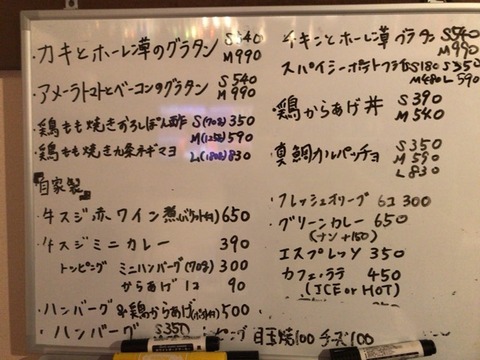 ・カキとホーレン草のグラタン S540 M990
・アメーラトマトとベーコンのグラタン S540 M990
・鶏もも焼きおろしぽん酢 S(70g) 350
・鶏もも焼き九条ネギマヨ M(125g) 590
L(180g) 830
自家製
・牛スジ赤ワイン煮(バケット付) 650
・牛スジミニカレー 390
トッピング ミニハンバーグ(70g) 300
からあげ 1コ 90
・ハンバーグ&鶏からあげ(バケット付) 500
・ハンバーグ S350
目玉焼100 チーズ100
・チキンとホーレン草グラタン S540 M990
スパイシーポテトフライ S180 S350 M480 L590
・鶏からあげ丼 S390 M540
・真鯛カルパッチョ S350 M590 L830
・フレッシュオリーブ 6コ 300
・グリーンカレー 650
(ナン+150)
エスプレッソ 350
カフェ・ラテ 450
(ICE or HOT)